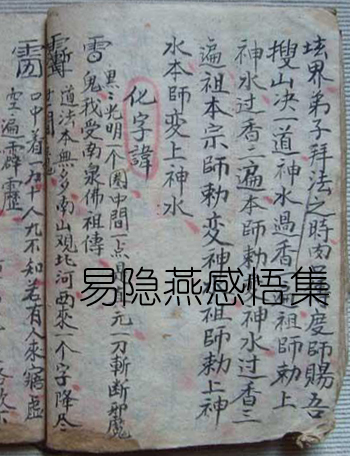 坛界弟子拜法之時肉度師賜吾
搜山决一道神水過香祖師勅上
神水过香二遍本師勅神水过香三
遍祖本宗師勅变神祖師勅上神
水本師变上神水
化字諱
黑光明一个圈中間一点元一刀斬断邪魔
鬼我受南泉佛祖傳
道法本無多南山观北河西來一个字降尽
口中着一九十人九不知若有人來窺虚
空一遍霹靂
易隐燕感悟集